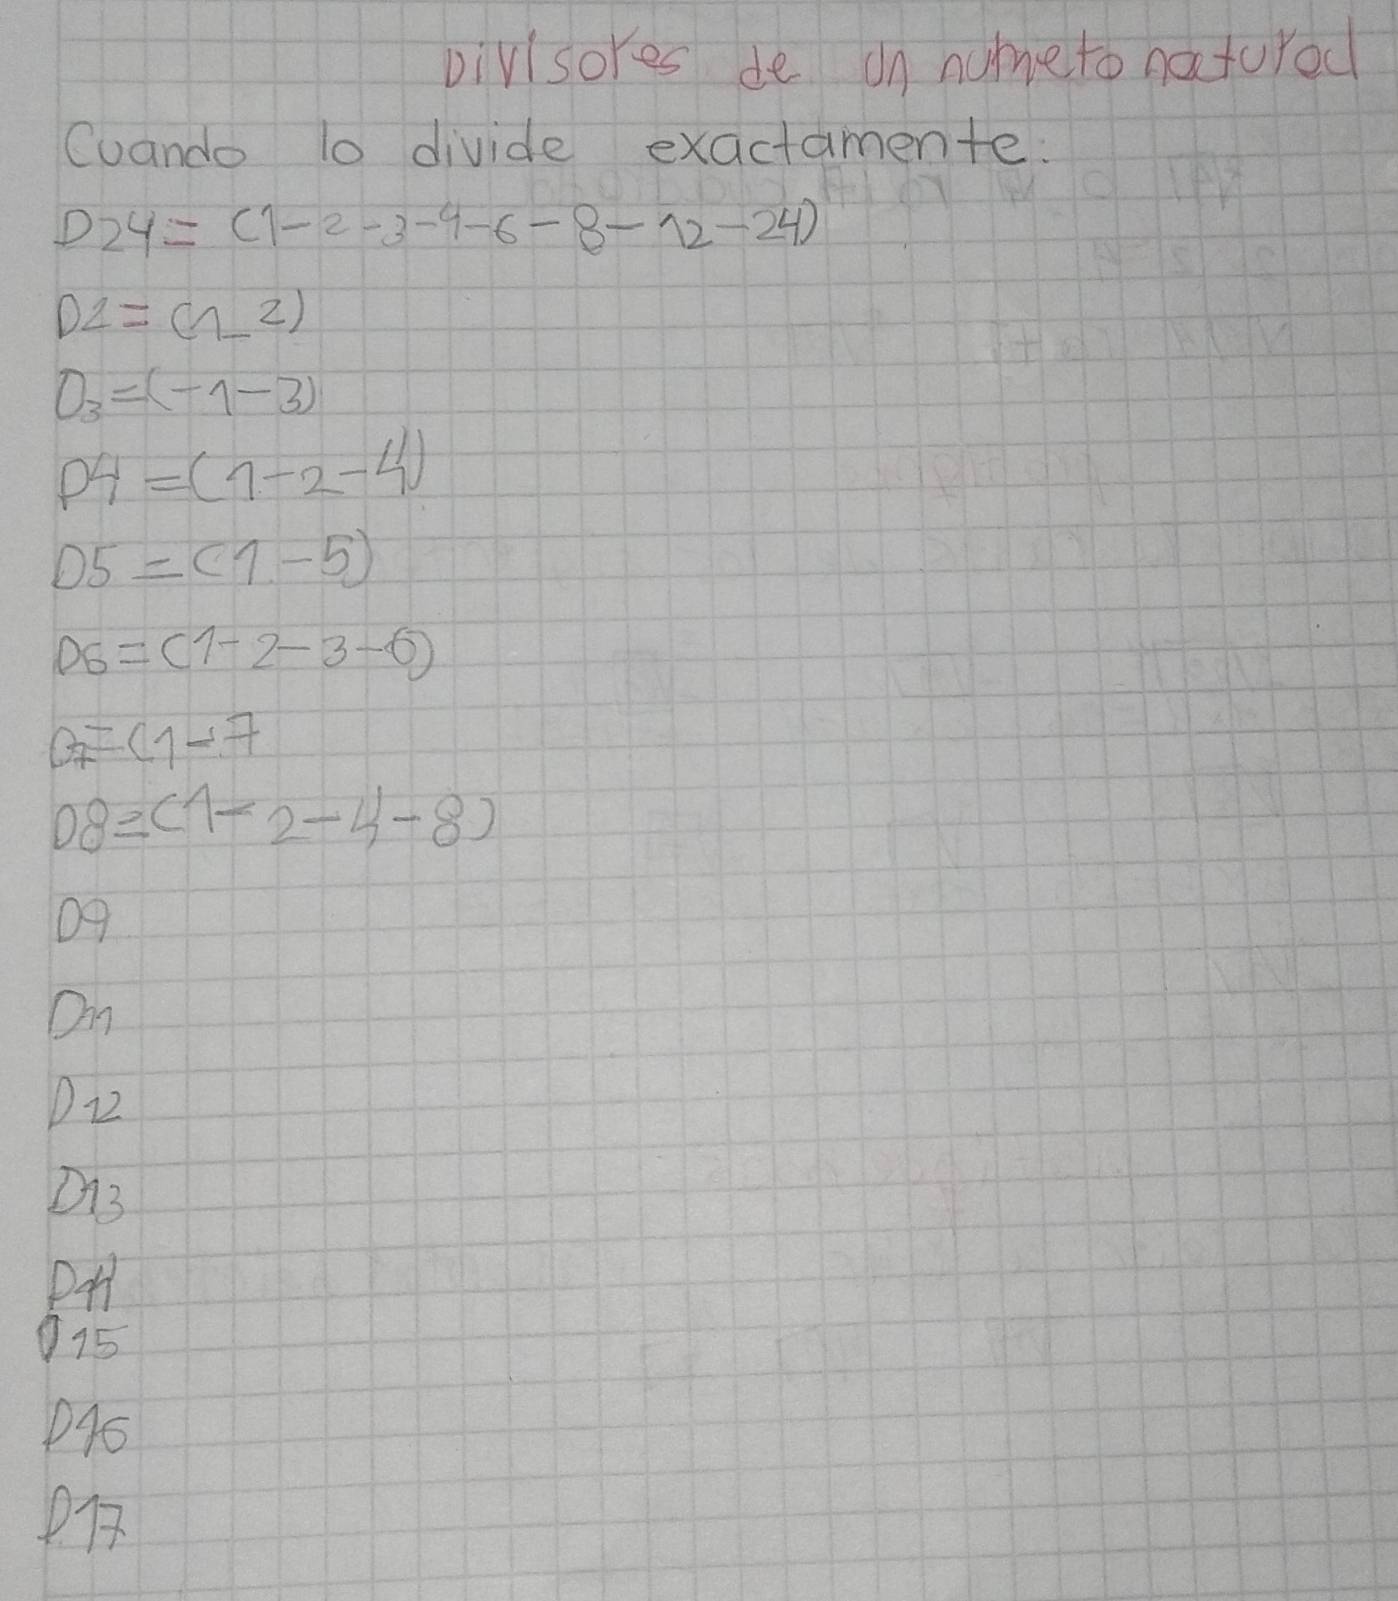 Divisores de un numero natural
Cuando lo divide exactamente.
D24= (1-2-3-4-6-8-12-24)
D2= (1_2)
D3=(-1-3)
D4=(1-2-4)
D5=(1-5)
D6=(1-2-3-6)
D7=(1-7
D8=(1-2-4-8)
D9
D11
D12
D13
D14
D15
D16
D17